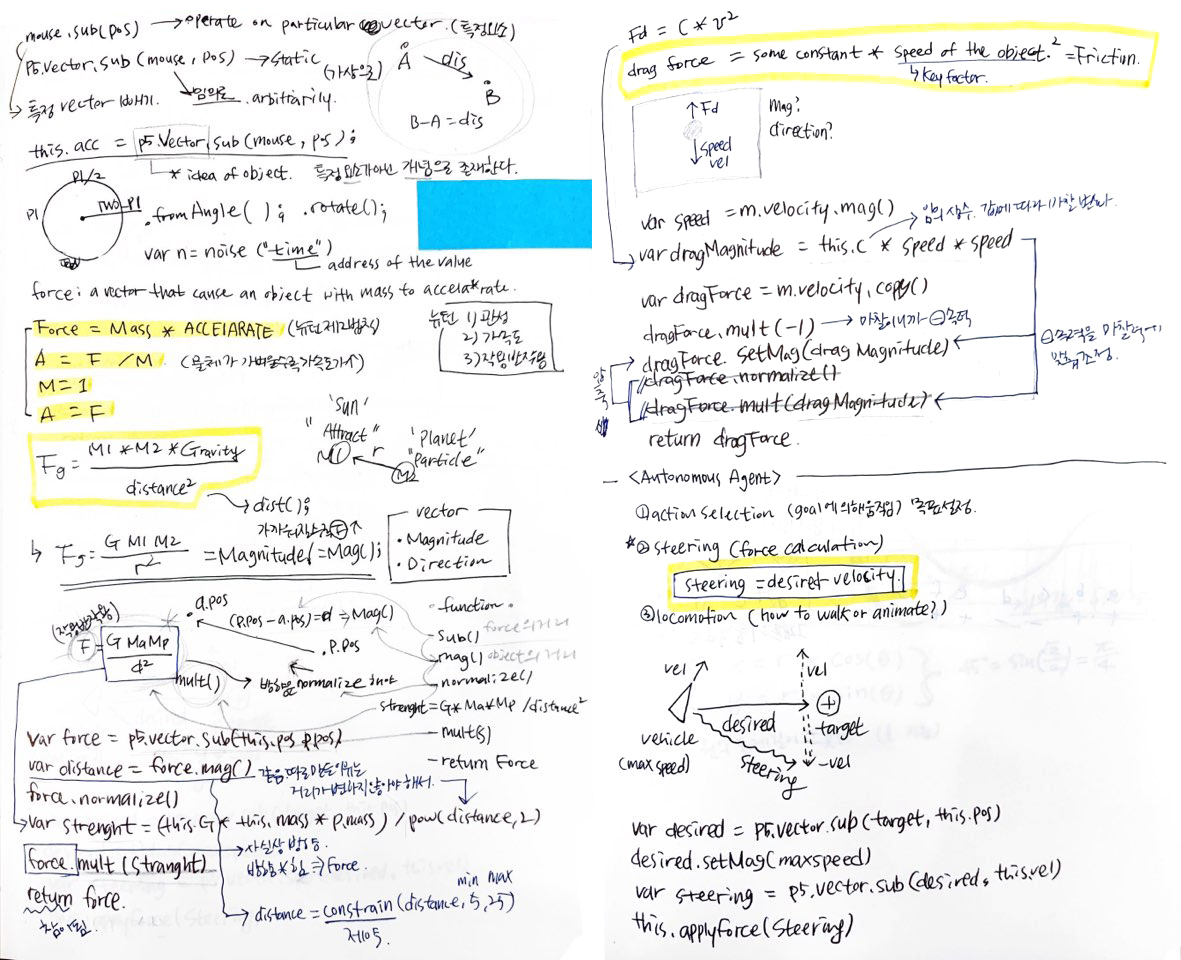 mouse.sub(pos) → operate on particular vector. (특정요소)
p5.Vector.sub(mouse, pos) → static
(가상으로)
A dis B
B-A = dis
→ 특정 vector 빼기. 임의로 arbitrarily.
this.acc = p5.Vector.sub(mouse, pos);
* idea of object. 특정요소가아닌 개념으로 존재한다.
PI/2
PI TWO-PI
.fromAngle( ); .rotate();
var n = noise ("time")
address of the value
force: a vector that cause an object with mass to accela*rate.
Force = Mass * ACCELARATE (뉴턴제2법칙)
A = F / M (물체가 가벼울수록 가속도가↑)
M = 1
A = F
뉴턴 1) 관성
2) 가속도
3) 작용반작용
Fg = M1 * M2 * Gravity
distance²
'Sun'
"Attract"
M1
r
'Planet'
"Particle"
M2
→ dist();
가까워질수록 F ↑
↳ Fg = G M1 M2 / r² = Magnitude(=Mag();
vector
• Magnitude
• Direction
(작용반작용)
F = G Ma Mp / d²
*
a.pos
(p.pos - a.pos) = d ⇒ Mag()
p.pos
mult()
→ 방향을 normalize
• function •
- Sub() force의거리
- mag() object의거리
- normalize()
strenght = G * Ma * Mp / distance²
- mult(s)
- return Force
var force = p5.vector.sub(this.pos p.pos)
var distance = force.mag()
거리가변하지않아야해서.
force.normalize()
→ var strenght = (this.G * this.mass * p.mass) / pow(distance, 2)
force.mult (Stranght) → 사실상 방향.
방향 * 힘 ⇒ force.
return force.
min max
→ distance = constrain (distance, 5, 25)
Fd = C * v²
drag force = some constant * speed of the object.² = Friction.
↳ key factor.
↑ Fd
↓ speed
vel
Mag?
direction?
var speed = m.velocity.mag()
var dragMagnitude = this.c * speed * speed
var dragForce = m.velocity.copy()
dragForce.mult(-1) → 마찰이니까 ⊖
dragForce.setMag(drag Magnitude)
//dragForce.normalize()
//dragForce.mult(dragMagnitude)
return dragForce.
<Autonomous Agent>
① action selection (goal에의해움직임) 목표설정.
* ② steering (force calculation)
steering = desired - velocity.
③ locomotion (how to walk or animate?)
vel
vel
desired
target
vehicle
(max speed)
steering
-vel
var desired = p5.vector.sub(target, this.pos)
desired.setMag(maxspeed)
var steering = p5.vector.sub(desired, this.vel)
this.applyforce(Steering)